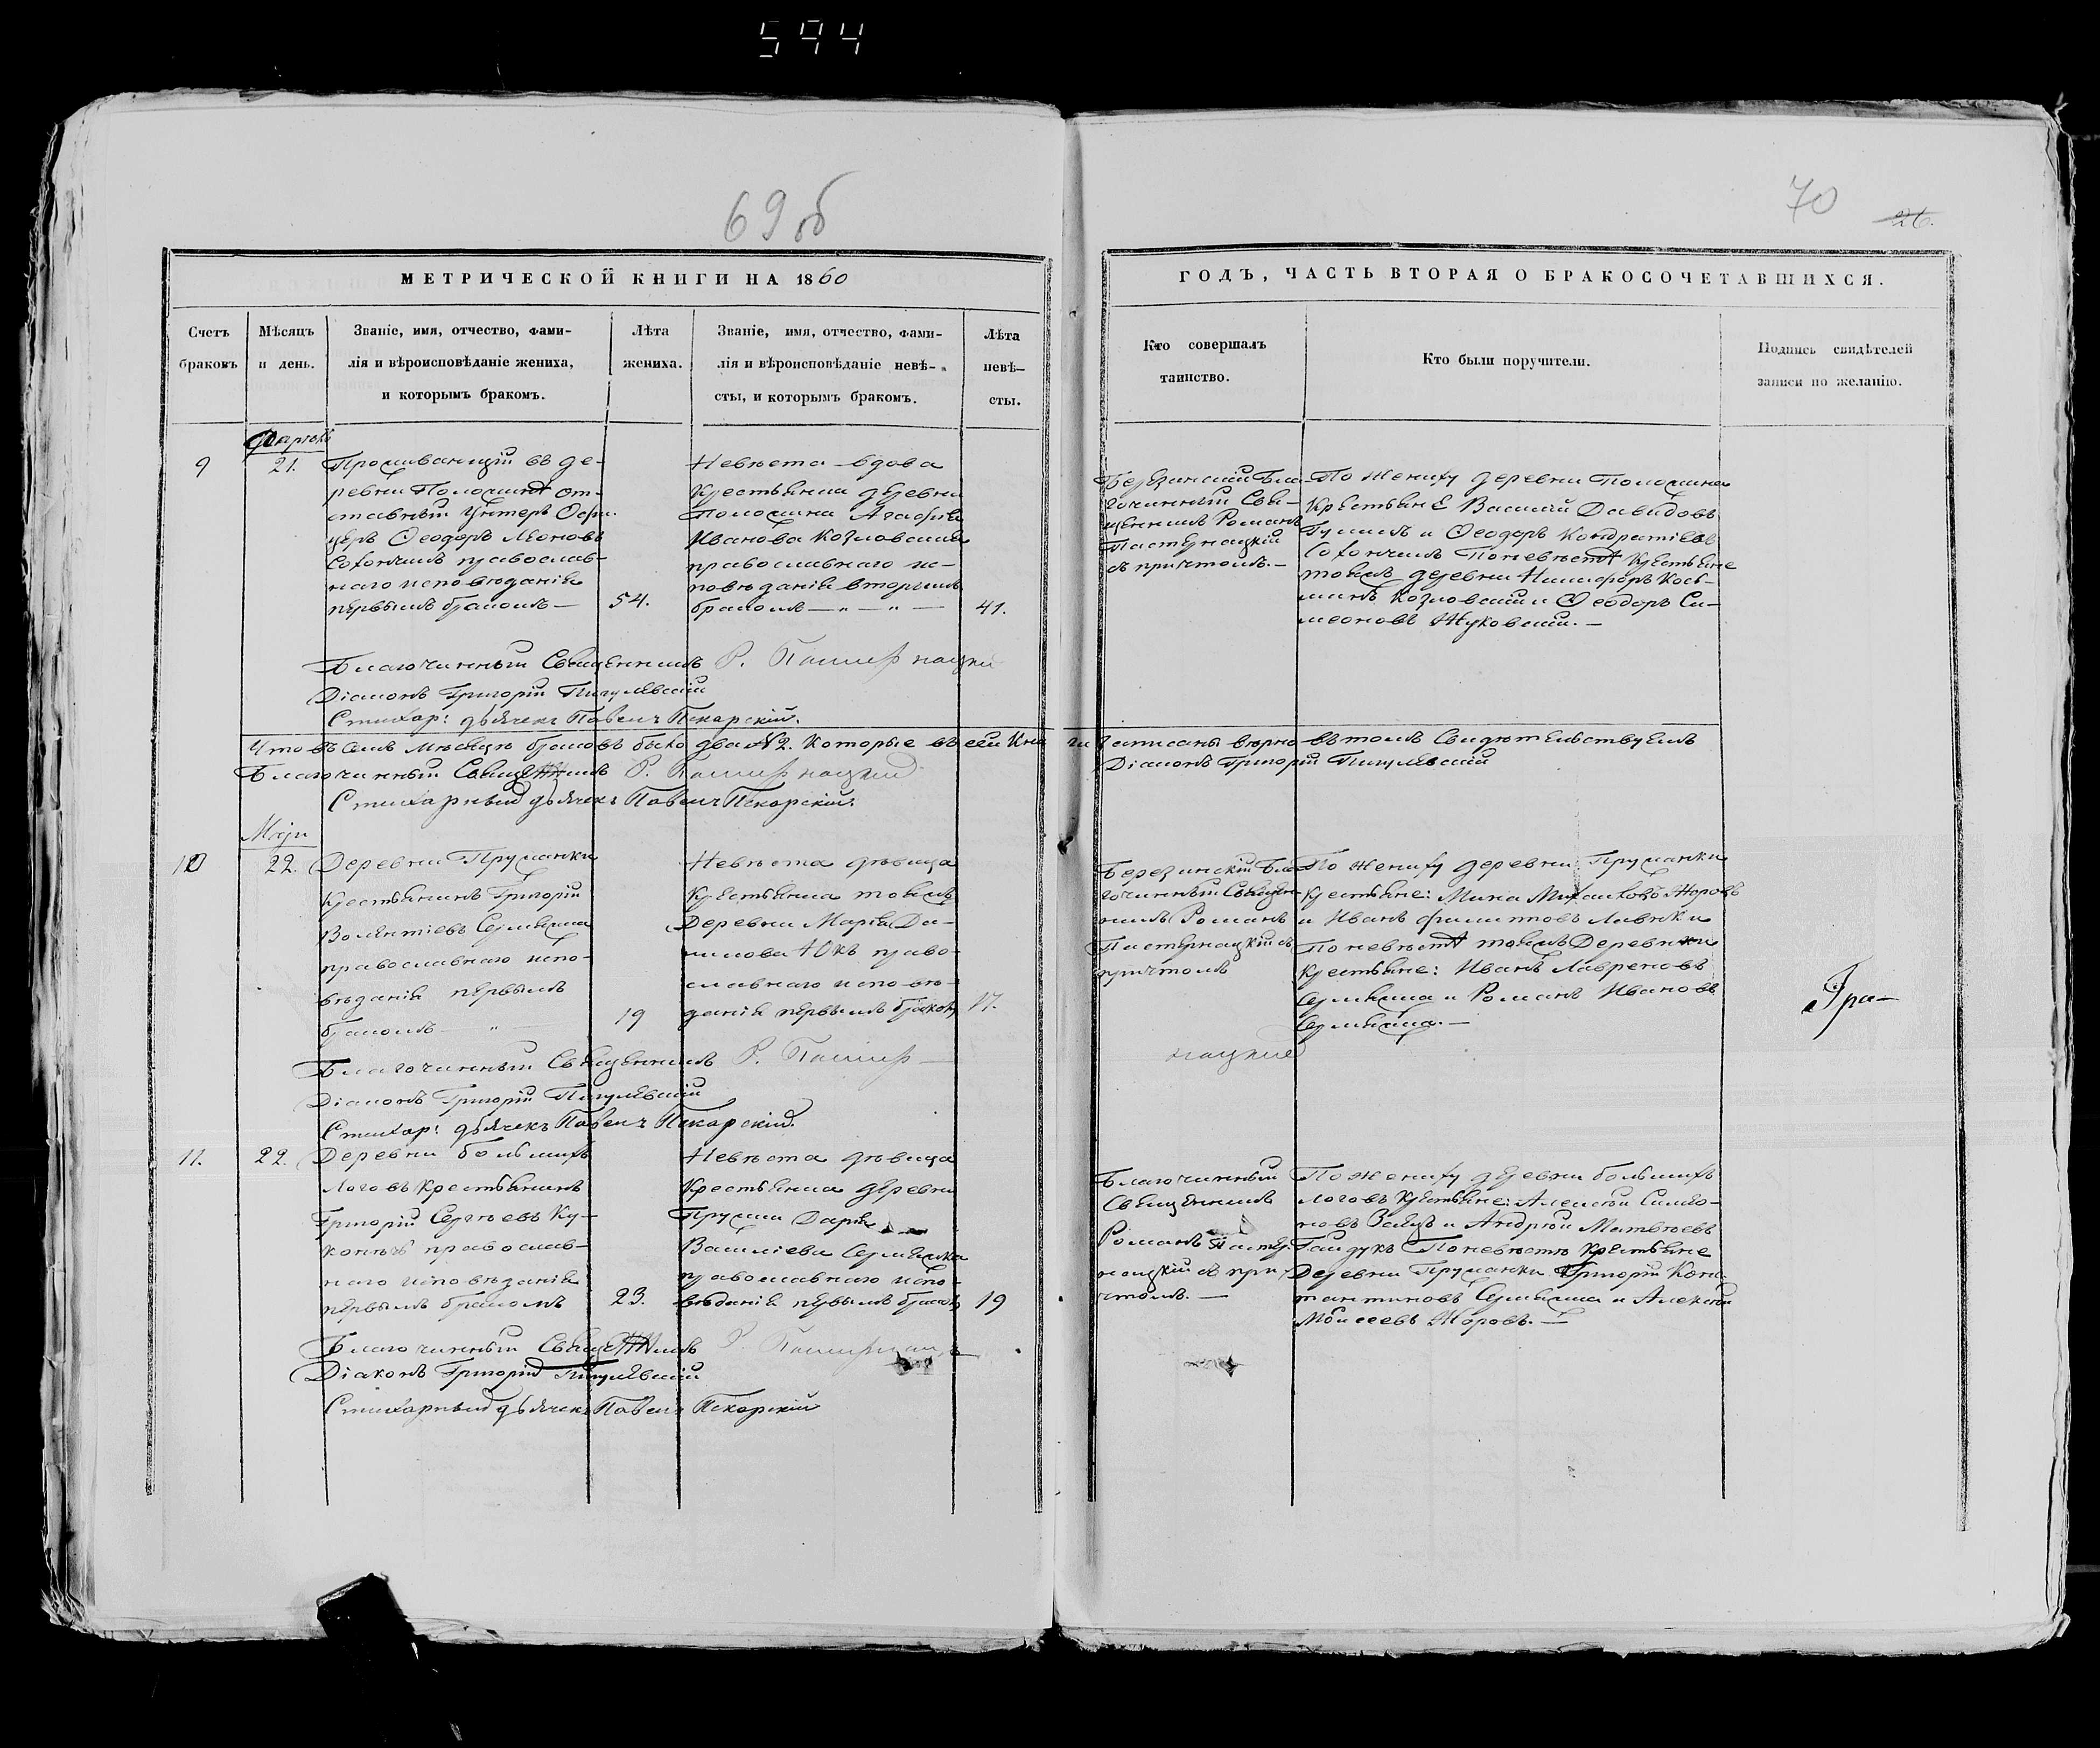 594
69 об
70
26.
МЕТРИЧЕСКОЙ КНИГИ НА 1860
ГОДЪ, ЧАСТЬ ВТОРАЯ О БРАКОСОЧЕТАВШИХСЯ.
Счетъ
браковъ
Мѣсяцъ
и день.
Званіе, имя, отчество, фами-
лія и вѣроисповѣданіе жениха,
и которымъ бракомъ.
Лѣта
жениха.
Званіе, имя, отчество, фами-
лія и вѣроисповѣданіе невѣ-
сты, и которымъ бракомъ.
Лѣта
невѣ-
сты.
Кто совершалъ
таинство.
Кто были поручители.
Подпись свидѣтелей
записи по желанію.
9
21.
Проживающій въ де-
ревни от-
ставный Унтеръ Офи-
церъ Ѳеодоръ Леоновъ
православ-
наго исповѣданія
первымъ бракомъ —
54.
Невѣста вдова
Крестьянка деревни
Агафія
Иванова Козловская
православнаго ис-
повѣданія вторымъ
бракомъ — " — " —
41.
Березинскій Бла-
гочинный Свя-
щенникъ Романъ
Пастернацкій
съ причтомъ. —
По жениху деревни
Крестьяне Василій Давидовъ
и Ѳеодоръ Кондратіевъ
По невѣстѣ Крестьяне
тоижъ деревни Никифоръ Кось-
минъ Козловскій и Ѳеодоръ Си-
меоновъ Жуковскій. —
Благочинный Священникъ Р. Пастернацкій
Діаконъ Григорій
Стихар: дьячекъ Павелъ Пекарскій.
Что въ семъ мѣсяцѣ браковъ было два №2. которые въ сей кни
ги записаны вѣрно въ томъ свидѣтельствуемъ
Благочинный Священникъ Р. Пастернацкій
Діаконъ Григорій
Стихарный дьячекъ Павелъ Пекарскій.
Маія
10
22.
Деревни Прусанки
Крестьянинъ Григорій
православнаго испо-
вѣданія первымъ
бракомъ — " —
19
Невѣста дѣвица
Крестьянка тоижъ
Деревни Марія Да-
нилова Юкъ право-
славнаго исповѣ-
данія первымъ бракомъ
17.
Березинскій Бла-
гочинный Священ-
никъ Романъ
Пастернацкій съ
причтомъ
По жениху деревни Прусанки
Крестьяне: Мина Михайловъ Жоровъ
и Иванъ Филиповъ
По невѣстѣ тоижъ Деревни
Крестьяне: Иванъ Лавреновъ
и Романъ Ивановъ
Гра—
Благочинный Священникъ Р. Пастер—
нацкій
Діаконъ Григорій
Стихар: дьячекъ Павелъ Пекарскій.
11.
22.
Деревни Большихъ
Логовъ Крестьянинъ
Григорій Сергѣевъ Ку-
православ-
наго исповѣданія
первымъ бракомъ
23.
Невѣста дѣвица
Крестьянка деревни
Дарія
Василіева
православнаго испо-
вѣданія первымъ бракомъ
19
Благочинный
Священникъ
Романъ Пастер-
нацкій съ при-
чтомъ. —
По жениху деревни Большихъ
Логовъ Крестьяне: Алексѣй Симео-
новъ Заяцъ и Андрей Матвѣевъ
Гайдукъ По невѣстѣ Крестьяне
Деревни Прусанки Григорій Конс-
тантиновъ и Алексѣй
Моисеевъ Жоровъ. —
Благочинный Священникъ Р.
Діаконъ Григорій
Стихарный дьячекъ Павелъ Пекарскій